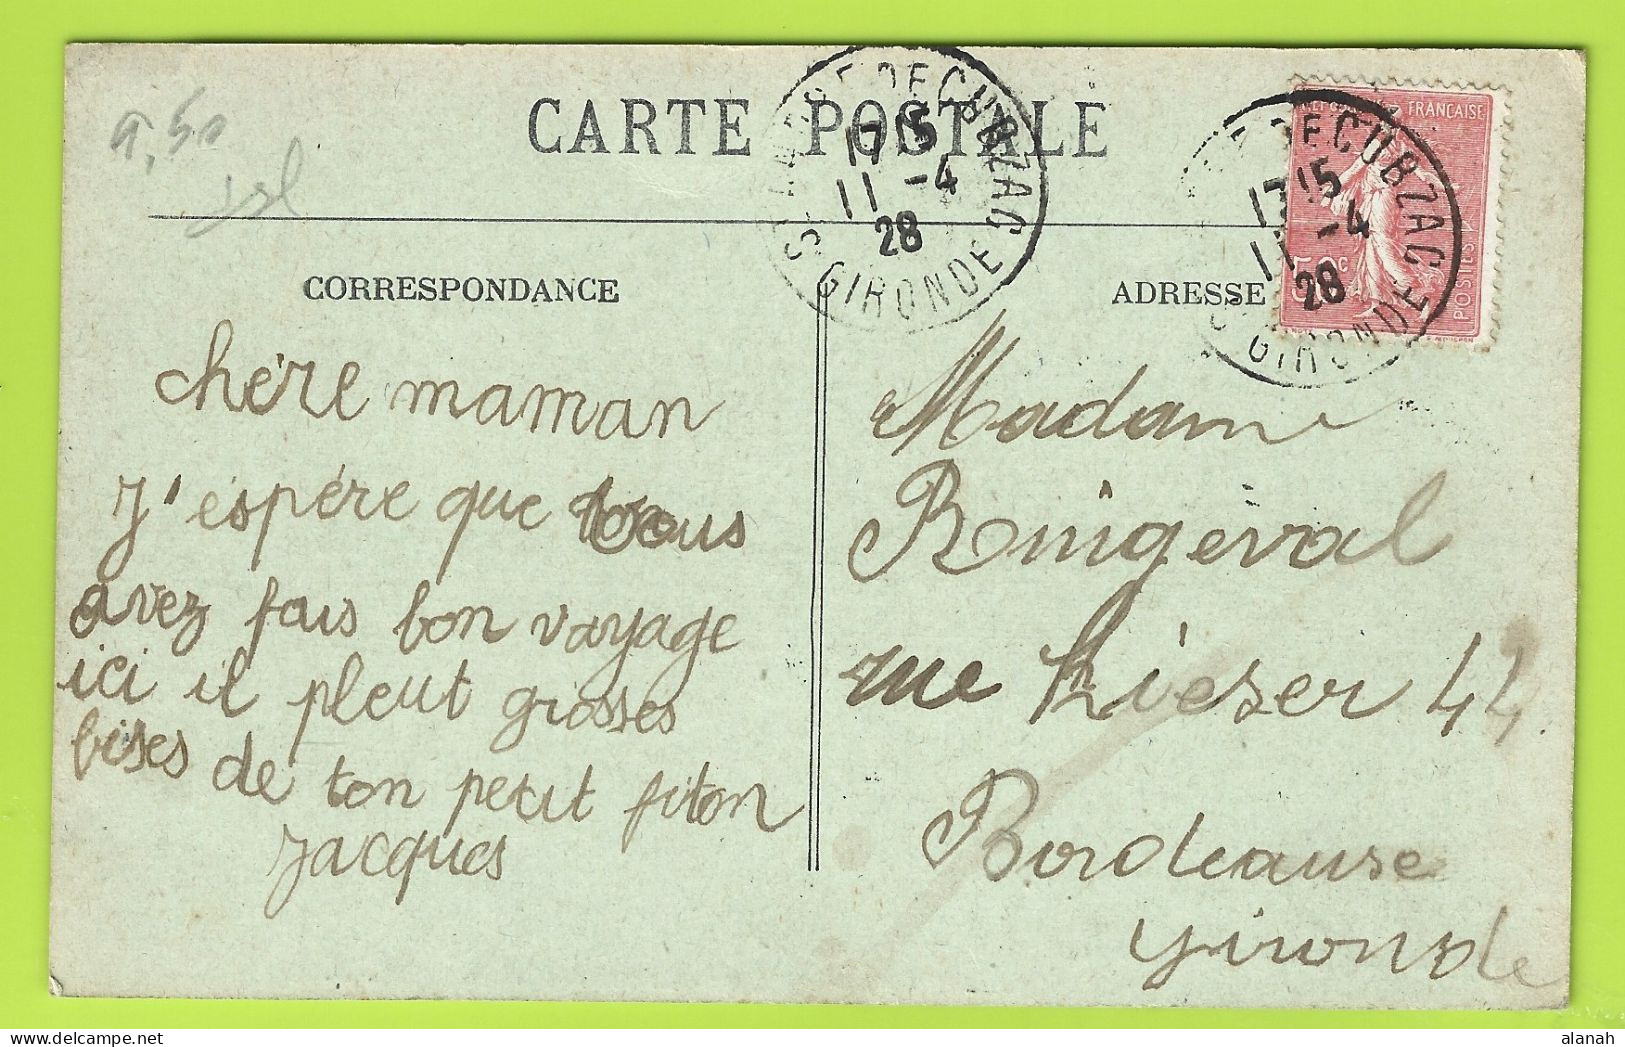 9,50
isl
CARTE POSTALE
ST ANDRE DE CUBZAC
17 15
11 -4
28
GIRONDE
DE CUBZAC
17 15
11 -4
28
GIRONDE
FRANÇAISE
50c
POSTES
CORRESPONDANCE
ADRESSE
chère maman
J'espére que vous
avez fais bon vayage
ici il pleut grosses
bises de ton petit fiton
Jacques
Madame
Ringeval
rue Lieser 44
Bordeause
gironde
alanah